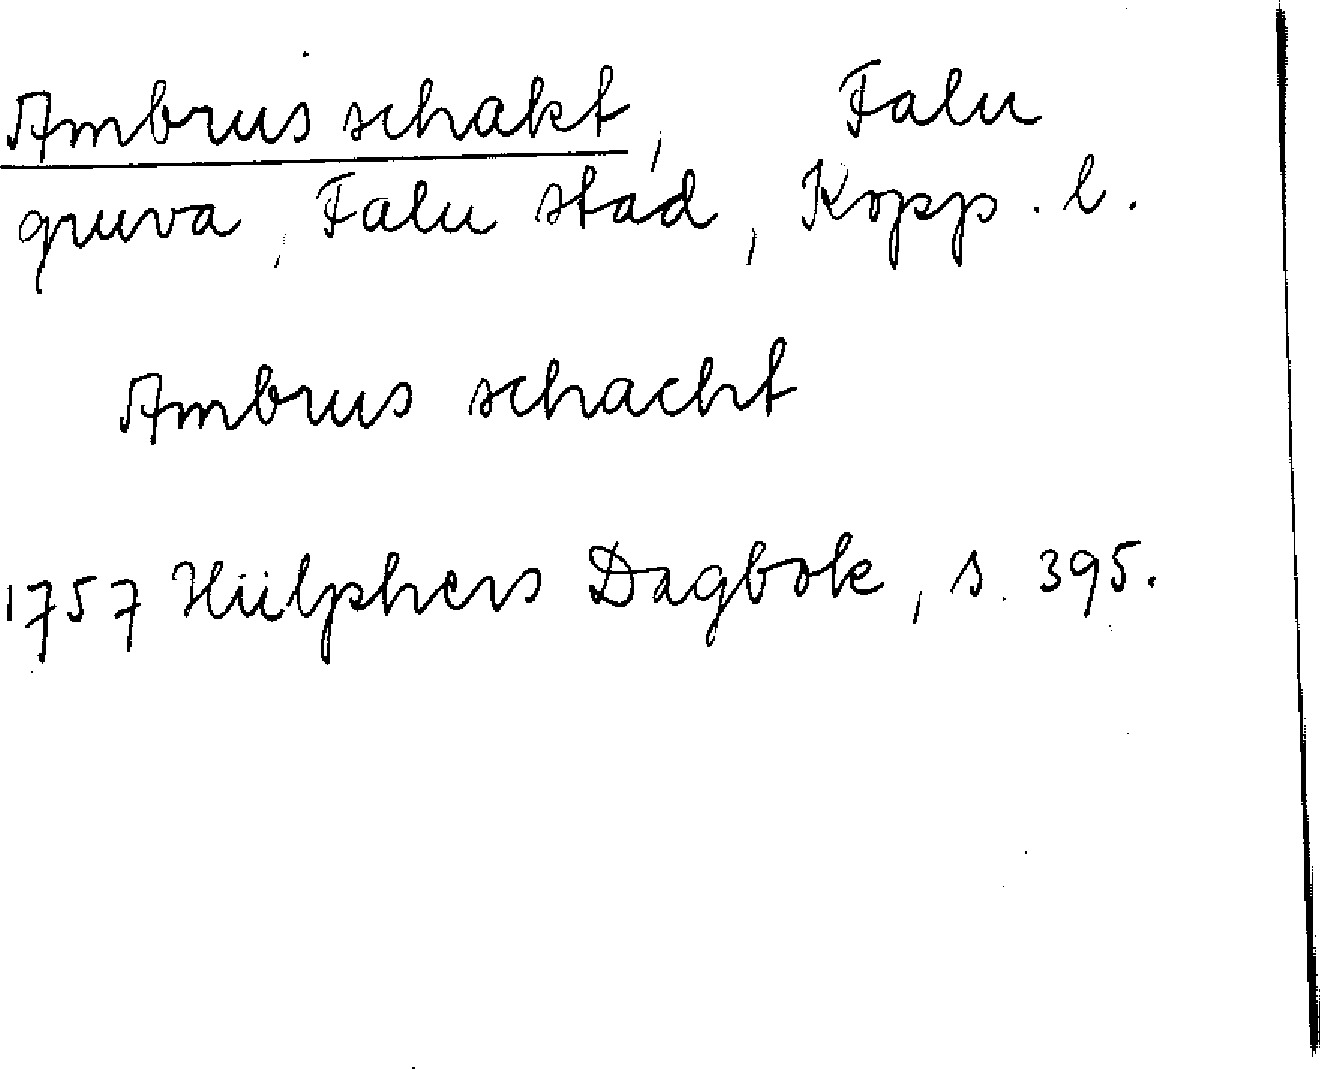 Ambrus schakt, Falu
gruva, Falu stad, Kopp. l.
Ambrus schacht
1757 Hülphers Dagbok, s. 395.